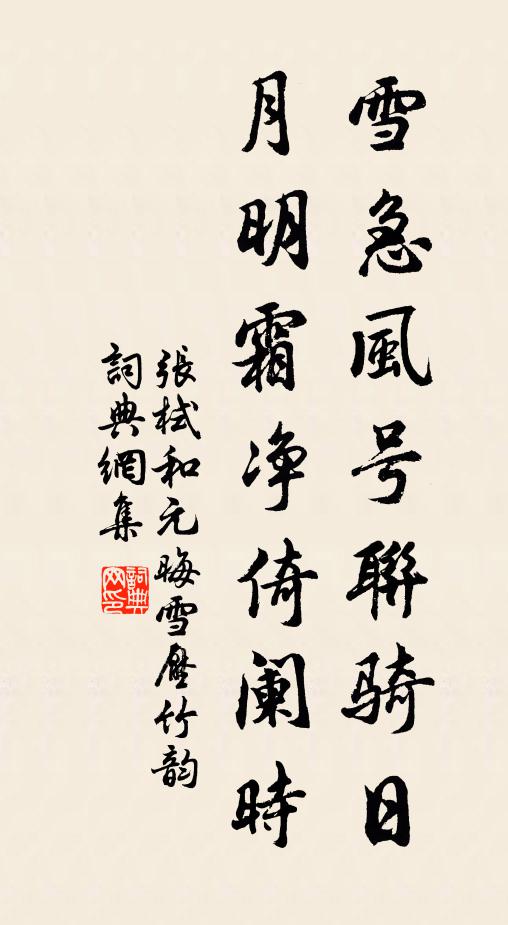 雪急風号聯騎日
月明霜净倚闌時
張栻和元晦雪壓竹韵
詞典網集
詞典網印